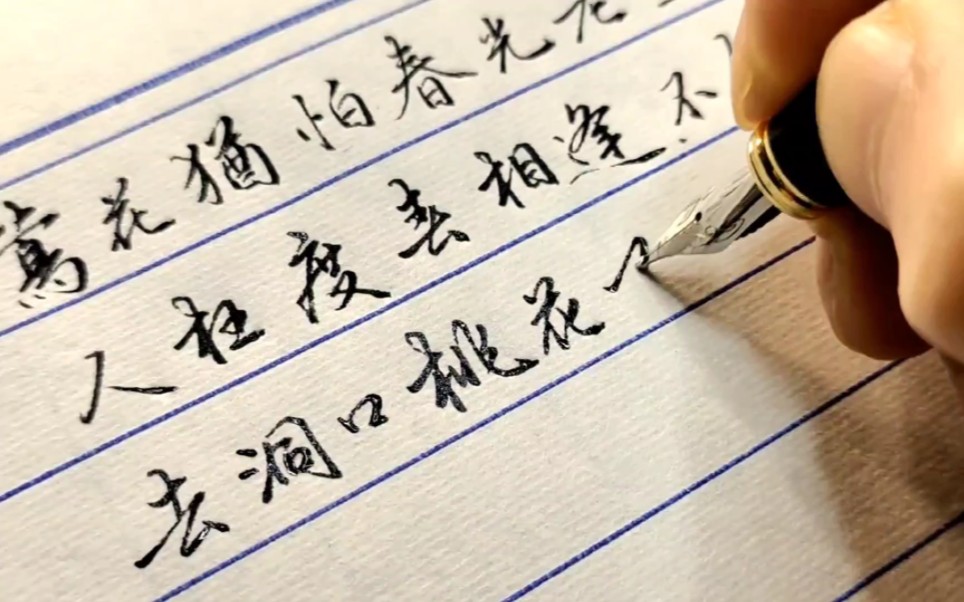 莺花犹怕春光老
人枉度春相逢不
去洞口桃花